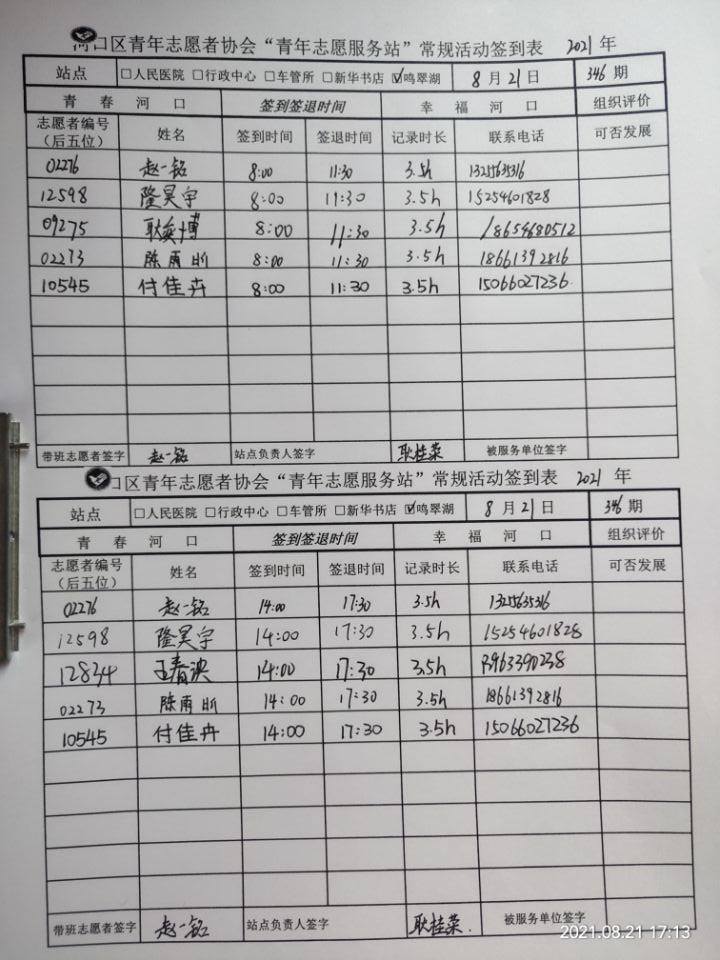 河口区青年志愿者协会“青年志愿服务站”常规活动签到表 2021 年
站点 □人民医院 □行政中心 □车管所 □新华书店 ☑鸣翠湖 8 月 21 日 346 期
青 春 河 口 签到签退时间 幸 福 河 口 组织评价
志愿者编号（后五位） 姓名 签到时间 签退时间 记录时长 联系电话 可否发展
02276 赵一铭 8:00 11:30 3.5h
12598 隆昊宇 8:00 11:30 3.5h 15254601828
09275 耿奕博 8:00 11:30 3.5h 18654680512
02273 陈雨昕 8:00 11:30 3.5h 18661392816
10545 付佳卉 8:00 11:30 3.5h 15066027236
带班志愿者签字 赵一铭 站点负责人签字 耿桂菜 被服务单位签字
口区青年志愿者协会“青年志愿服务站”常规活动签到表 2021 年
站点 □人民医院 □行政中心 □车管所 □新华书店 ☑鸣翠湖 8 月 21 日 346 期
青 春 河 口 签到签退时间 幸 福 河 口 组织评价
志愿者编号（后五位） 姓名 签到时间 签退时间 记录时长 联系电话 可否发展
02276 赵一铭 14:00 17:30 3.5h
12598 隆昊宇 14:00 17:30 3.5h 15254601828
12834 王春泱 14:00 17:30 3.5h
02273 陈雨昕 14:00 17:30 3.5h 18661392816
10545 付佳卉 14:00 17:30 3.5h 15066027236
带班志愿者签字 赵一铭 站点负责人签字 耿桂菜 被服务单位签字
2021.08.21 17:13